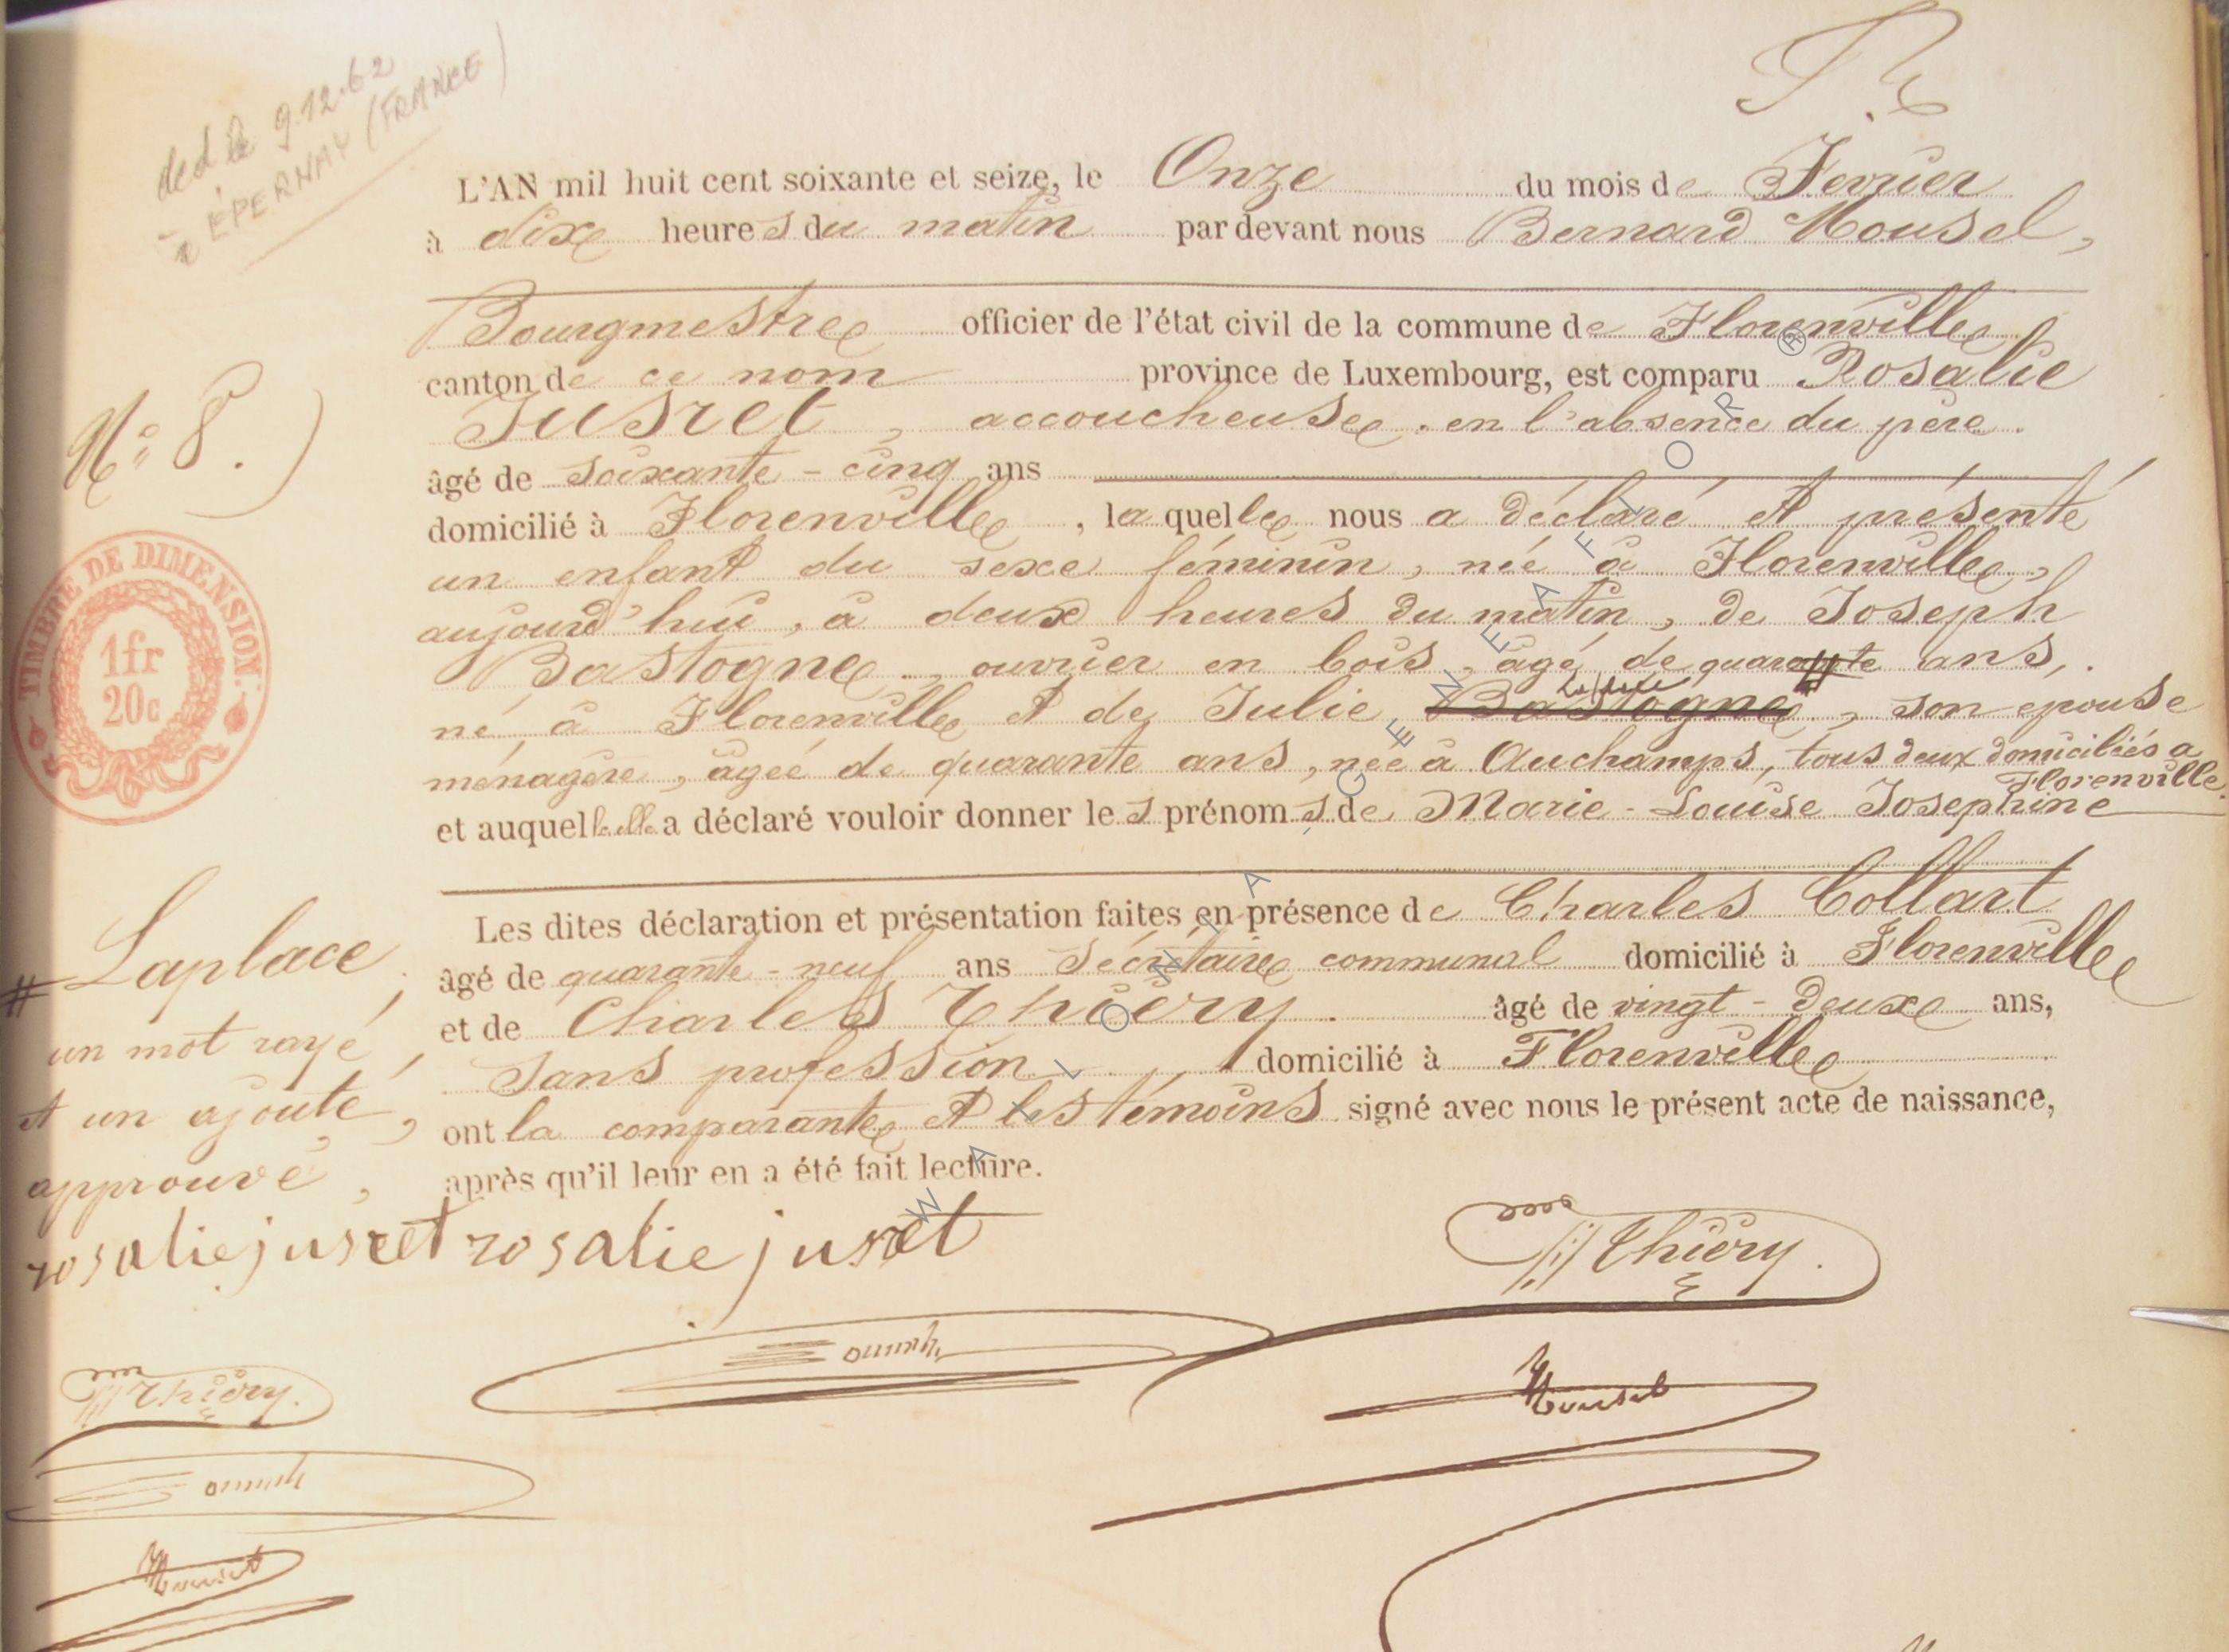 ded le 9.12.62
à ÉPERNAY (FRANCE)
L'AN mil huit cent soixante et seize, le Onze du mois de Fevrier
à dix heures du matin par devant nous Bernard Mousel,
Bourgmestre officier de l'état civil de la commune de Florenville
canton de ce nom province de Luxembourg, est comparu Rosalie
Jusret, accoucheuse, en l'absence du père.
âgé de soixante-cinq ans
domicilié à Florenville, laquelle nous a déclaré et présenté
un enfant du sexe féminin, née à Florenville,
aujourd'hui, à deux heures du matin, de Joseph
Bastogne, ouvrier en bois, âgé de quarante ans,
né à Florenville et de Julie Bastogne, son epouse
Laplace
ménagère, âgée de quarante ans, née à Auchamps, tous deux domiciliés a
Florenville.
et auquel elle a déclaré vouloir donner les prénoms de Marie-Louise Josephine
Les dites déclaration et présentation faites en présence de Charles Collart
âgé de quarante-neuf ans Secrétaire communal domicilié à Florenville
et de Charles Thiery. âgé de vingt-deux ans,
Sans profession domicilié à Florenville
ont la comparante et les témoins signé avec nous le présent acte de naissance,
après qu'il leur en a été fait lecture.
N° 8.
TIMBRE DE DIMENSION.
1fr
20c
# Laplace,
un mot rayé,
et un ajouté,
approuvé,
rosalie jusret rosalie jusret
Thiery.
Mousel
Thiery.
Mousel
WALLONIA GENEAFTOR ®